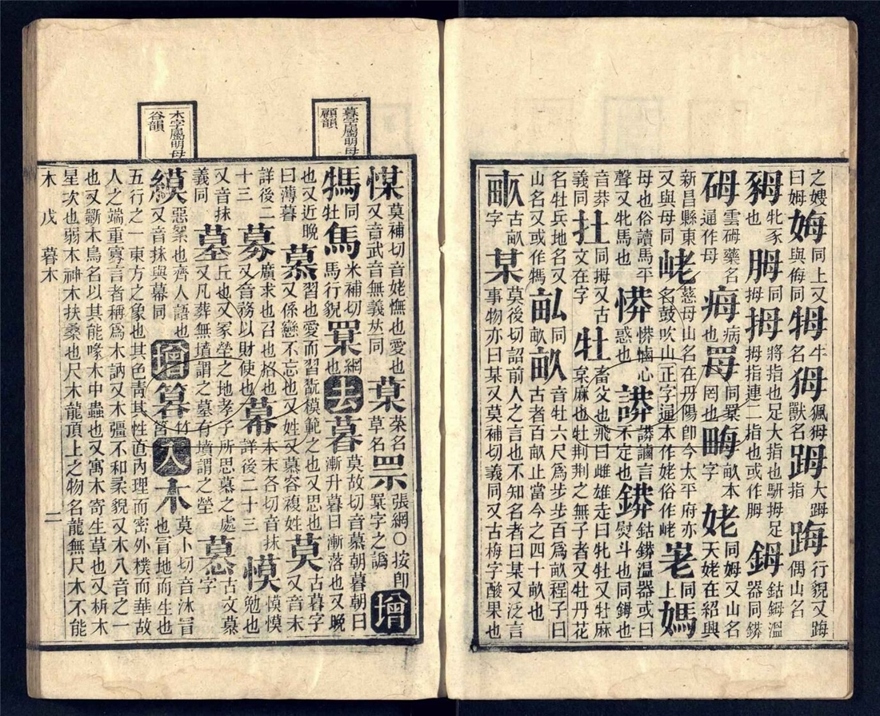 之嫂曰姆娒同上又與侮同牳牛名㺳猦㺳獸名踇大踇指踇行貌又踇偶山名
牝豕也胟拇將指也足大指也駢拇足拇指連二指也或作胟鉧鈷鉧溫器同䥈
砪雲砪藥名逼作母痗病也同罞罔也畮畝本字姥同姆又山名天姥在紹興
新昌縣東又與母同峔慈母山名在丹陽卽今太平府亦名鼓吹山正字逼本作姥俗作峔同上媽
母也俗讀馬平聲又牝馬也心惑也不定也䥈鈷䥈溫器或曰熨斗也同鉧也
音莽義同同拇又古文在字牡畜父也飛曰雌雄走曰牝牡又牡麻枲麻也牡荆荆之無子者又牡丹花
名牡兵地名又山名又或作畆同畝畝音牡六尺爲步步百爲畝程子曰古者百畝止當今之四十畝也
畒古畝字某莫後切詔前人之言也不知名者曰某又泛言事物亦曰某又莫補切義同又古梅字酸果也
暮字屬明母顧韻
木字屬明母谷韻
莫補切音姥憮也愛也又音武音無義𠀤同菜名草名張網○按卽字之譌增
同牡馬米補切馬行貌網也去暮莫故切音墓朝暮朝曰漸升暮曰漸落也又晚
也又近晚曰薄暮慕習也愛而習翫模範之也又思也又係戀不忘也又姓又慕容複姓莫古暮字又音末
詳後二十三募廣求也召也格也又音務以財使也幕本末各切音抹詳後二十三慔慔慔勉也
又音抹義同墓丘也又冢塋之地孝子所思慕之處又凡葬無墳謂之墓有墳謂之塋古文慕字
縸惡絮也齊人語也又音抹與幕同增竹笞入木莫卜切音沐冒也冒地而生也
五行之一東方之象也其色靑其性直內理而密外樸而華故人之端重寡言者稱爲木訥又木彊不和柔貌又木八音之一
也又斸木鳥名以其能喙木中蟲也又寓木寄生草也又枿木星次也弱木神木扶桑也尺木龍頂上之物名龍無尺木不能
木 戊 暮木 二